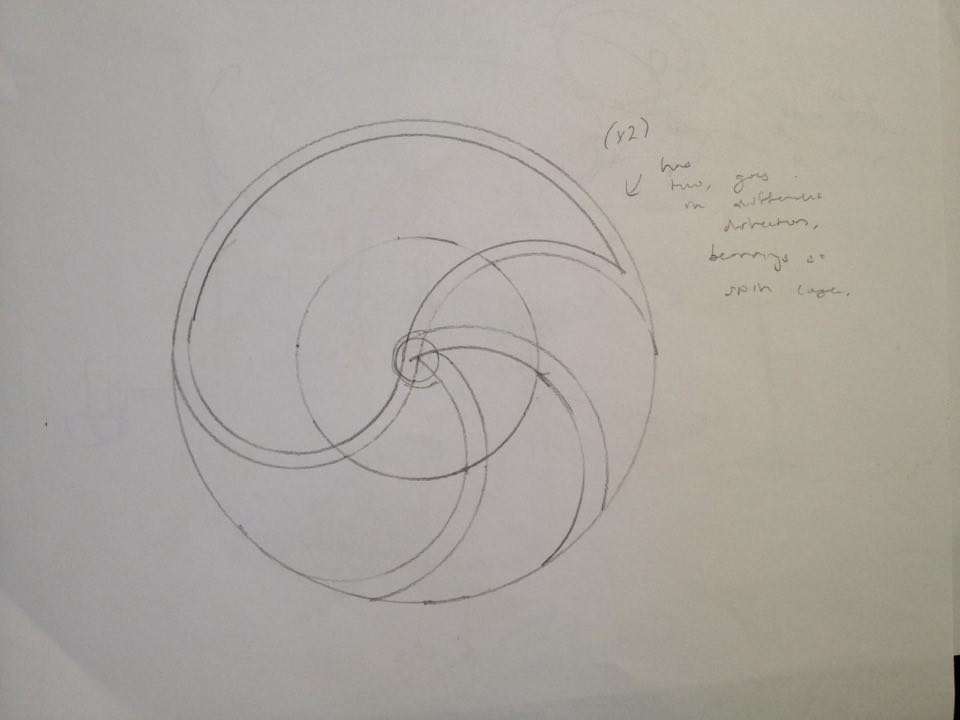 (x2)
has
two, goes
in different
directions,
bearings so
spin